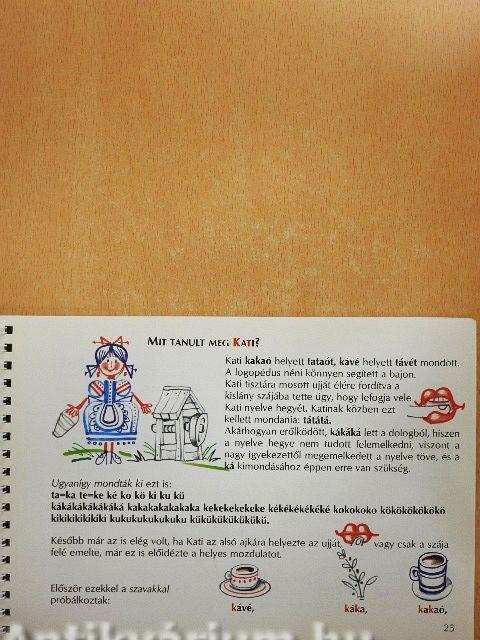 MIT TANULT MEG KATI?
Kati kakaó helyett tataót, kávé helyett távét mondott.
A logopédus néni könnyen segített a bajon.
Kati tisztára mosott ujját élére fordítva a
kislány szájába tette úgy, hogy lefogja vele
Kati nyelve hegyét. Katinak közben ezt
kellett mondania: tátátá.
Akárhogyan erőlködött, kákáká lett a dologból, hiszen
a nyelve hegye nem tudott felemelkedni, viszont a
nagy igyekezettől megemelkedett a nyelve töve, és a
ká kimondásához éppen erre van szükség.
Ugyanígy mondták ki ezt is:
ta=ka te=ke ké ko kö ki ku kü
kákákákákákáká kakakakakaka kekekekekeke kékékékékéké kokokoko kökökökökökö
kikikikikikiki kukukukukukuku kükükükükükükü.
Később már az is elég volt, ha Kati az alsó ajkára helyezte az ujját, vagy csak a szája
felé emelte, már ez is előidézte a helyes mozdulatot.
Először ezekkel a szavakkal
próbálkoztak:
kávé,
káka,
kakaó,
25
Antikvárium.hu